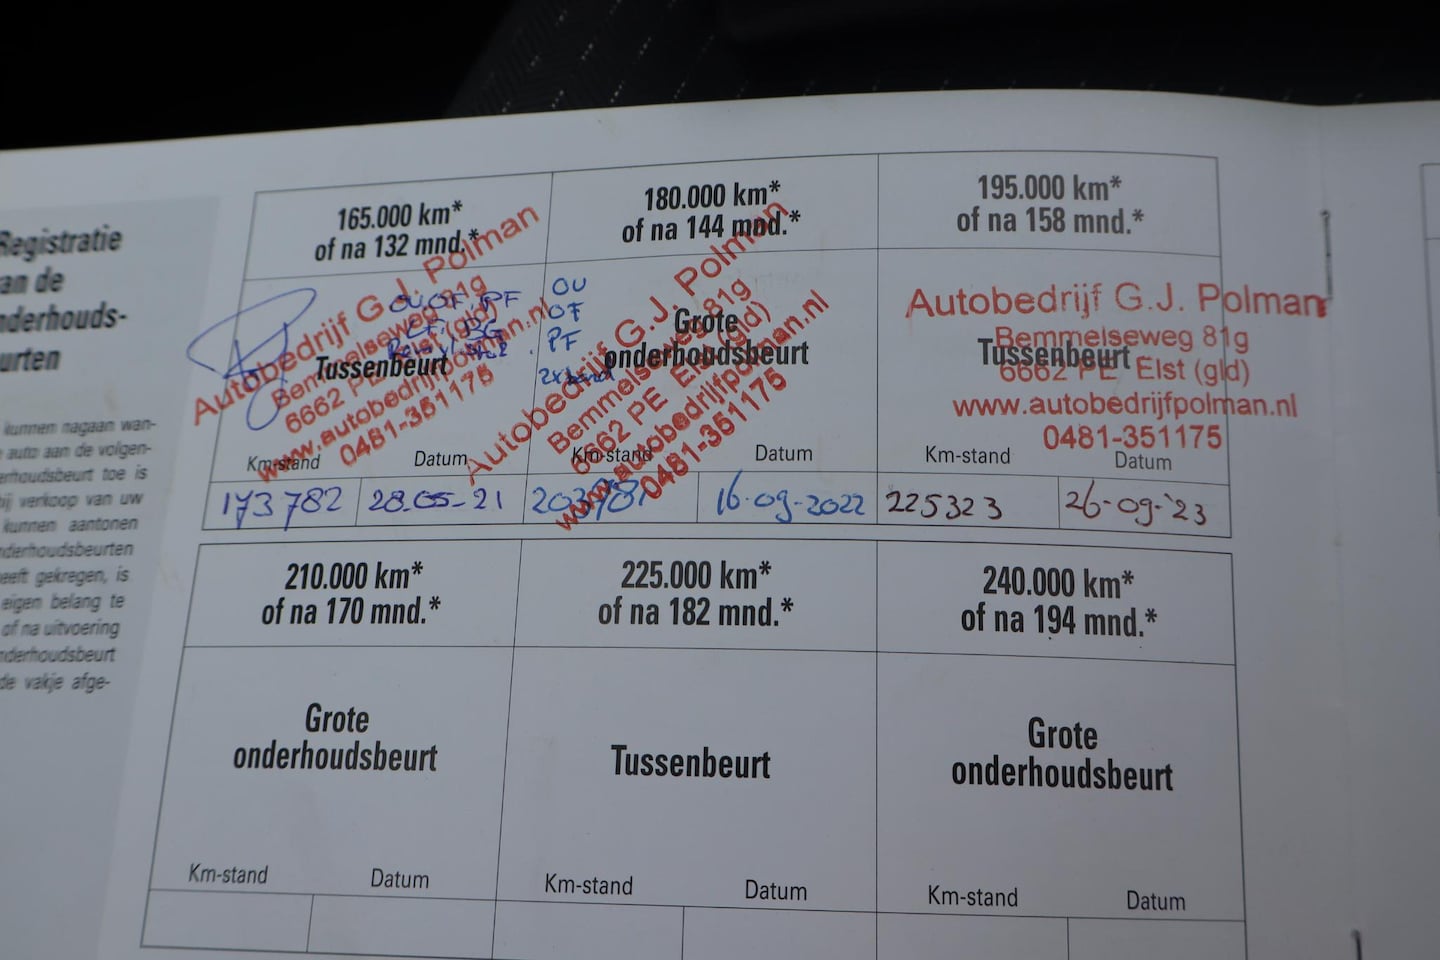 Registratie
an de
nderhouds-
urten
kunnen nagaan wan-
auto aan de volgen-
erhoudsbeurt toe is
ij verkoop van uw
kunnen aantonen
nderhoudsbeurten
eeft gekregen, is
eigen belang te
of na uitvoering
nderhoudsbeurt
de vakje afge-
165.000 km*
of na 132 mnd.*
Tussenbeurt
Autobedrijf G.J. Polman
Bemmelseweg 81g
6662 PE Elst (gld)
www.autobedrijfpolman.nl
0481-351175
OU OF, PF
Km-stand
Datum
173782
28.05-21
180.000 km*
of na 144 mnd.*
OU
OF
PF
2x band
Grote
onderhoudsbeurt
Autobedrijf G.J. Polman
Bemmelseweg 81g
6662 PE Elst (gld)
www.autobedrijfpolman.nl
0481-351175
Km-stand
Datum
16-09-2022
195.000 km*
of na 158 mnd.*
Tussenbeurt
Autobedrijf G.J. Polman
Bemmelseweg 81g
6662 PE Elst (gld)
www.autobedrijfpolman.nl
0481-351175
Km-stand
Datum
225323
26-09-'23
210.000 km*
of na 170 mnd.*
Grote
onderhoudsbeurt
Km-stand
Datum
225.000 km*
of na 182 mnd.*
Tussenbeurt
Km-stand
Datum
240.000 km*
of na 194 mnd.*
Grote
onderhoudsbeurt
Km-stand
Datum